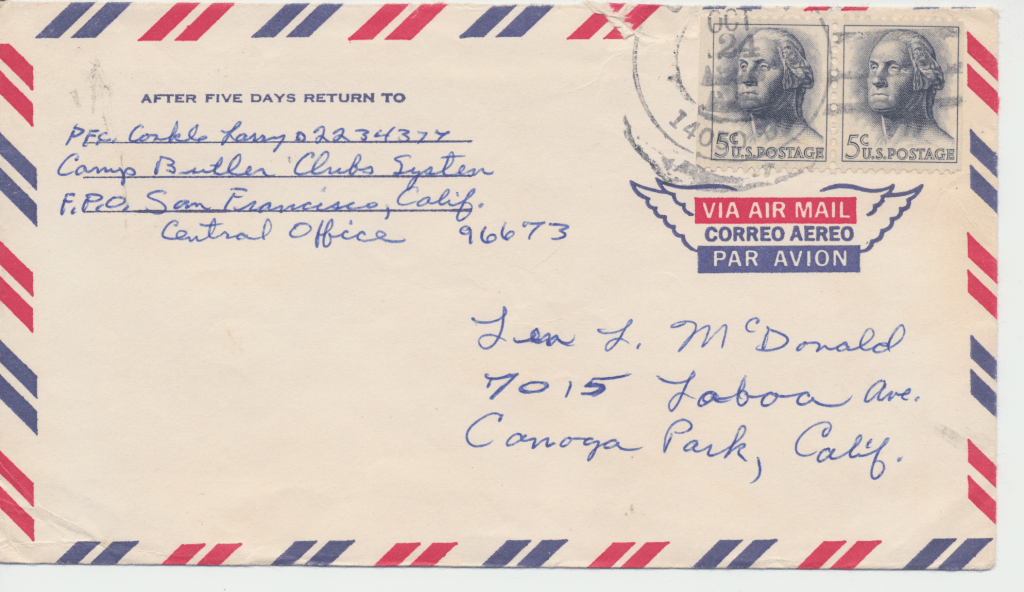 AFTER FIVE DAYS RETURN TO
Pfc. Conkle Larry D 2234374
Camp Butler Clubs System
F.P.O. San Francisco, Calif.
Central Office 96673
OCT
24
5¢ U.S. POSTAGE
5¢ U.S. POSTAGE
VIA AIR MAIL
CORREO AEREO
PAR AVION
Len L. McDonald
7015 Laboa Ave.
Canoga Park, Calif.